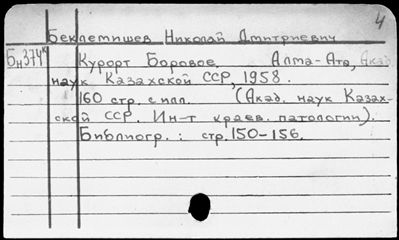 4
Беклемишев Николай Дмитриевич
Бн374к
Курорт Боровое. Алма-Ата, Акад.
наук Казахской ССР, 1958.
160 стр. с илл. (Акад. наук Казах-
ской ССР. Ин-т краев. патологии).
Библиогр.: стр. 150-156.